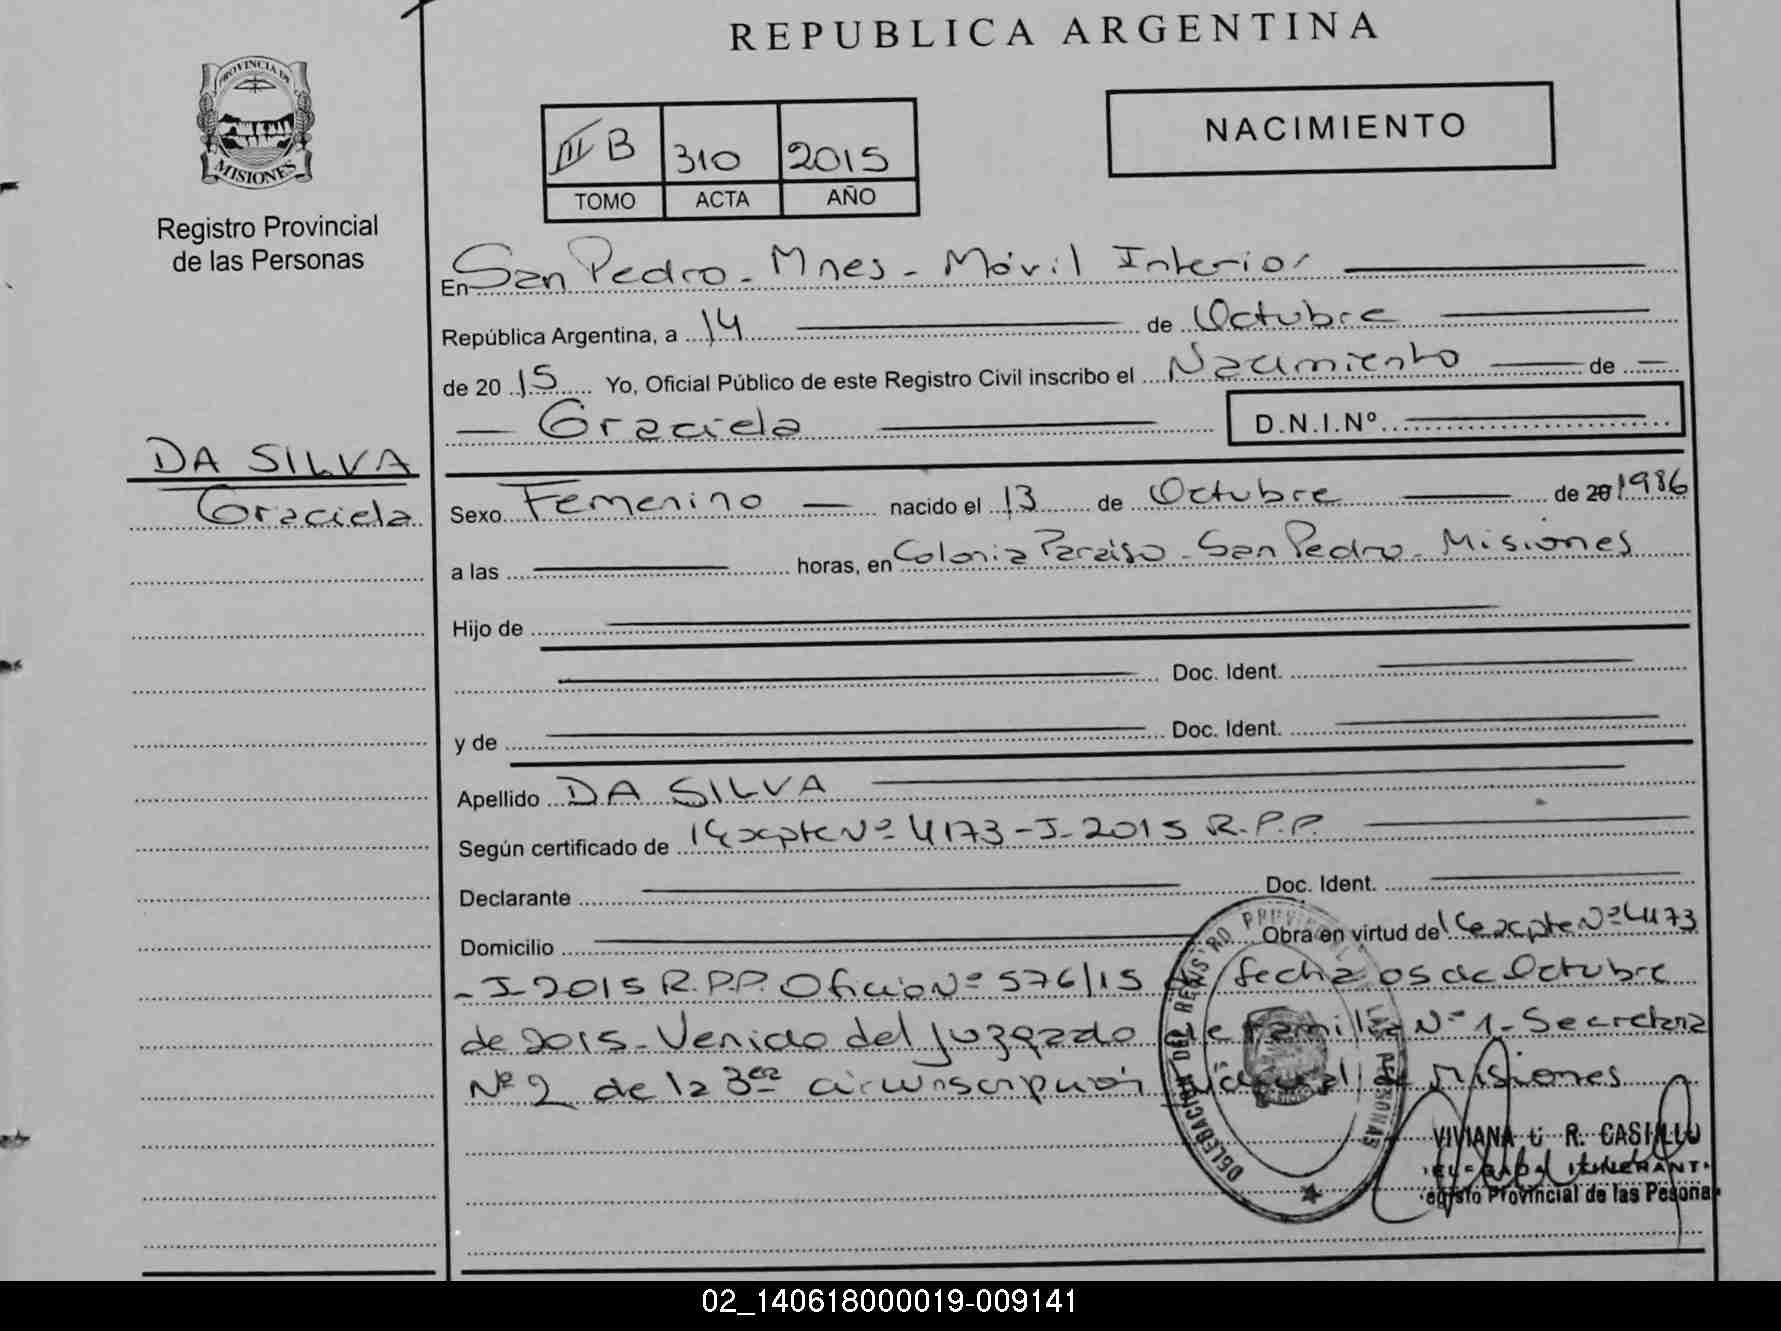 REPUBLICA ARGENTINA
PROVINCIA DE
MISIONES
Registro Provincial
de las Personas
III B 310 2015
TOMO ACTA AÑO
NACIMIENTO
En San Pedro - Mnes - Móvil Interior
República Argentina, a 14 de Octubre
de 2015 Yo, Oficial Público de este Registro Civil inscribo el Nacimiento de
Graciela D.N.I.Nº
DA SILVA
Graciela
Sexo Femenino nacido el 13 de Octubre de 20 1986
a las horas, en Colonia Paraiso - San Pedro - Misiones
Hijo de
Doc. Ident.
y de Doc. Ident.
Apellido DA SILVA
Según certificado de Expte Nº 4173-I-2015 R.P.P.
Declarante Doc. Ident.
Domicilio Obra en virtud del Expte Nº 4173
-I-2015 R.P.P. Oficio Nº 576/15 de fecha 05 de Octubre
de 2015 - Venido del Juzgado de Familia Nº 1 - Secretaria
Nº 2 de la 3era circunscripción Judicial de Misiones
DELEGACION DEL REGISTRO PROVINCIAL DE LAS PERSONAS
VIVIANA R. CASTILLO
DELEGADA ITINERANTE
Registro Provincial de las Pesonas
02_140618000019-009141